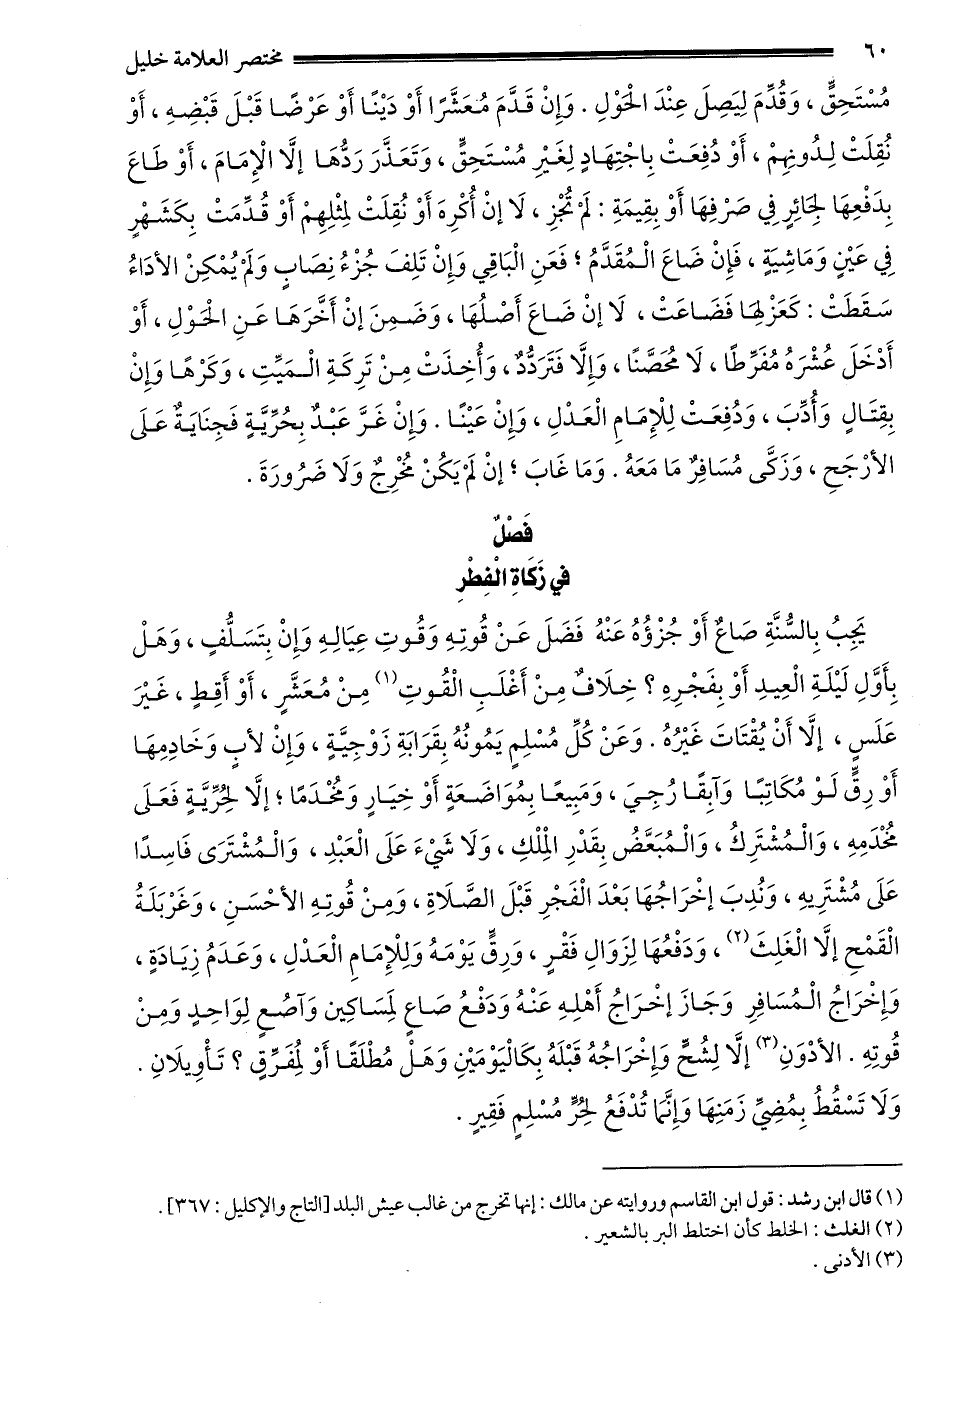 ٦٠ مختصر العلامة خليل
مُسْتَحِقٍّ ، وَقُدِّمَ لِيَصِلَ عِنْدَ الْحَوْلِ . وَإِنْ قَدَّمَ مُعَشَّرًا أَوْ دَيْنًا أَوْ عَرْضًا قَبْلَ قَبْضِهِ ، أَوْ
نُقِلَتْ لِدُونِهِمْ ، أَوْ دُفِعَتْ بِاجْتِهَادٍ لِغَيْرِ مُسْتَحِقٍّ ، وَتَعَذَّرَ رَدُّهَا إِلَّا الْإِمَامَ ، أَوْ طَاعَ
بِدَفْعِهَا لِجَائِرٍ فِي صَرْفِهَا أَوْ بِقِيمَةٍ : لَمْ تُجْزِ ، لَا إنْ أُكْرِهَ أَوْ نُقِلَتْ لِمْثِلِهِمْ أَوْ قُدِّمَتْ بِكَشَهْرٍ
فِي عَيْنٍ وَمَاشِيَةٍ ، فَإِنْ ضَاعَ الْمُقَدَّمُ ؛ فَعَنِ الْبَاقِي وَإِنْ تَلِفَ جُزْءُ نِصَابٍ وَلَمْ يُمْكِنْ الأَدَاءُ
سَقَطَتْ : كَعَزْلِهَا فَضَاعَتْ ، لَا إنْ ضَاعَ أَصْلُهَا ، وَضَمِنَ إنْ أَخَّرَهَا عَنِ الْحَوْلِ ، أَوْ
أَدْخَلَ عُشْرَهُ مُفَرِّطًا ، لَا مُحَصِّنًا ، وَإِلَّا فَتَرَدُّدٌ ، وَأُخِذَتْ مِنْ تَرِكَةِ الْمَيِّتِ ، وَكَرْهًا وَإِنْ
بِقِتَالٍ وَأُدِّبَ ، وَدُفِعَتْ لِلْإِمَامِ الْعَدْلِ ، وَإِنْ عَيْنًا . وَإِنْ غَرَّ عَبْدٌ بِحُرِّيَّةٍ فَجِنَايَةٌ عَلَى
الأَرْجَحِ ، وَزَكَّى مُسَافِرٌ مَا مَعَهُ . وَمَا غَابَ ؛ إنْ لَمْ يَكُنْ مُخْرِجٌ وَلَا ضَرُورَةَ .
فَصْلٌ
فِي زَكَاةِ الْفِطْرِ
يَجِبُ بِالسُّنَّةِ صَاعٌ أَوْ جُزْؤُهُ عَنْهُ فَضَلَ عَنْ قُوتِهِ وَقُوتِ عِيَالِهِ وَإِنْ بِتَسَلُّفٍ ، وَهَلْ
بِأَوَّلِ لَيْلَةِ الْعِيدِ أَوْ بِفَجْرِهِ ؟ خِلَافٌ مِنْ أَغْلَبِ الْقُوتِ(١) مِنْ مُعَشَّرٍ ، أَوْ أَقِطٍ ، غَيْرَ
عَلَسٍ ، إلَّا أَنْ يُقْتَاتَ غَيْرُهُ . وَعَنْ كُلِّ مُسْلِمٍ يَمُونُهُ بِقَرَابَةٍ زَوْجِيَّةٍ ، وَإِنْ لأَبٍ وَخَادِمِهَا
أَوْ رِقٍّ لَوْ مُكَاتَبًا وَآبِقًا رُجِيَ ، وَمَبِيعًا بِمُوَاضَعَةٍ أَوْ خِيَارٍ وَمُخْدَمًا ؛ إلَّا لِحُرِّيَّةٍ فَعَلَى
مُخْدَمِهِ ، وَالْمُشْتَرَكُ ، وَالْمُبَعَّضُ بِقَدْرِ الْمِلْكِ ، وَلَا شَيْءَ عَلَى الْعَبْدِ ، وَالْمُشْتَرَى فَاسِدًا
عَلَى مُشْتَرِيهِ ، وَنُدِبَ إخْرَاجُهَا بَعْدَ الْفَجْرِ قَبْلَ الصَّلَاةِ ، وَمِنْ قُوتِهِ الأَحْسَنِ ، وَغَرْبَلَةُ
الْقَمْحِ إلَّا الْغَلِثَ(٢) ، وَدَفْعُهَا لِزَوَالِ فَقْرٍ ، وَرِقٍّ يَوْمَهُ وَلِلْإِمَامِ الْعَدْلِ ، وَعَدَمُ زِيَادَةٍ ،
وَإِخْرَاجُ الْمُسَافِرِ وَجَازَ إخْرَاجُ أَهْلِهِ عَنْهُ وَدَفْعُ صَاعٍ لِمَسَاكِين وَآصُعٍ لِوَاحِدٍ وَمِنْ
قُوتِهِ . الأَدْوَنِ(٣) إلَّا لِشُحٍّ وَإِخْرَاجُهُ قَبْلَهُ بِكَالْيَوْمَيْنِ وَهَلْ مُطْلَقًا أَوْ لِمُفَرِّقٍ ؟ تَأْوِيلَانِ .
وَلَا تَسْقُطُ بِمُضِيِّ زَمَنِهَا وَإِنَّمَا تُدْفَعُ لِحُرٍّ مُسْلِمٍ فَقِيرٍ .
(١) قال ابن رشد : قول ابن القاسم وروايته عن مالك : إنها تخرج من غالب عيش البلد [التاج والإكليل : ٣٦٧] .
(٢) الغلث : الخلط كأن اختلط البر بالشعير .
(٣) الأدنى .